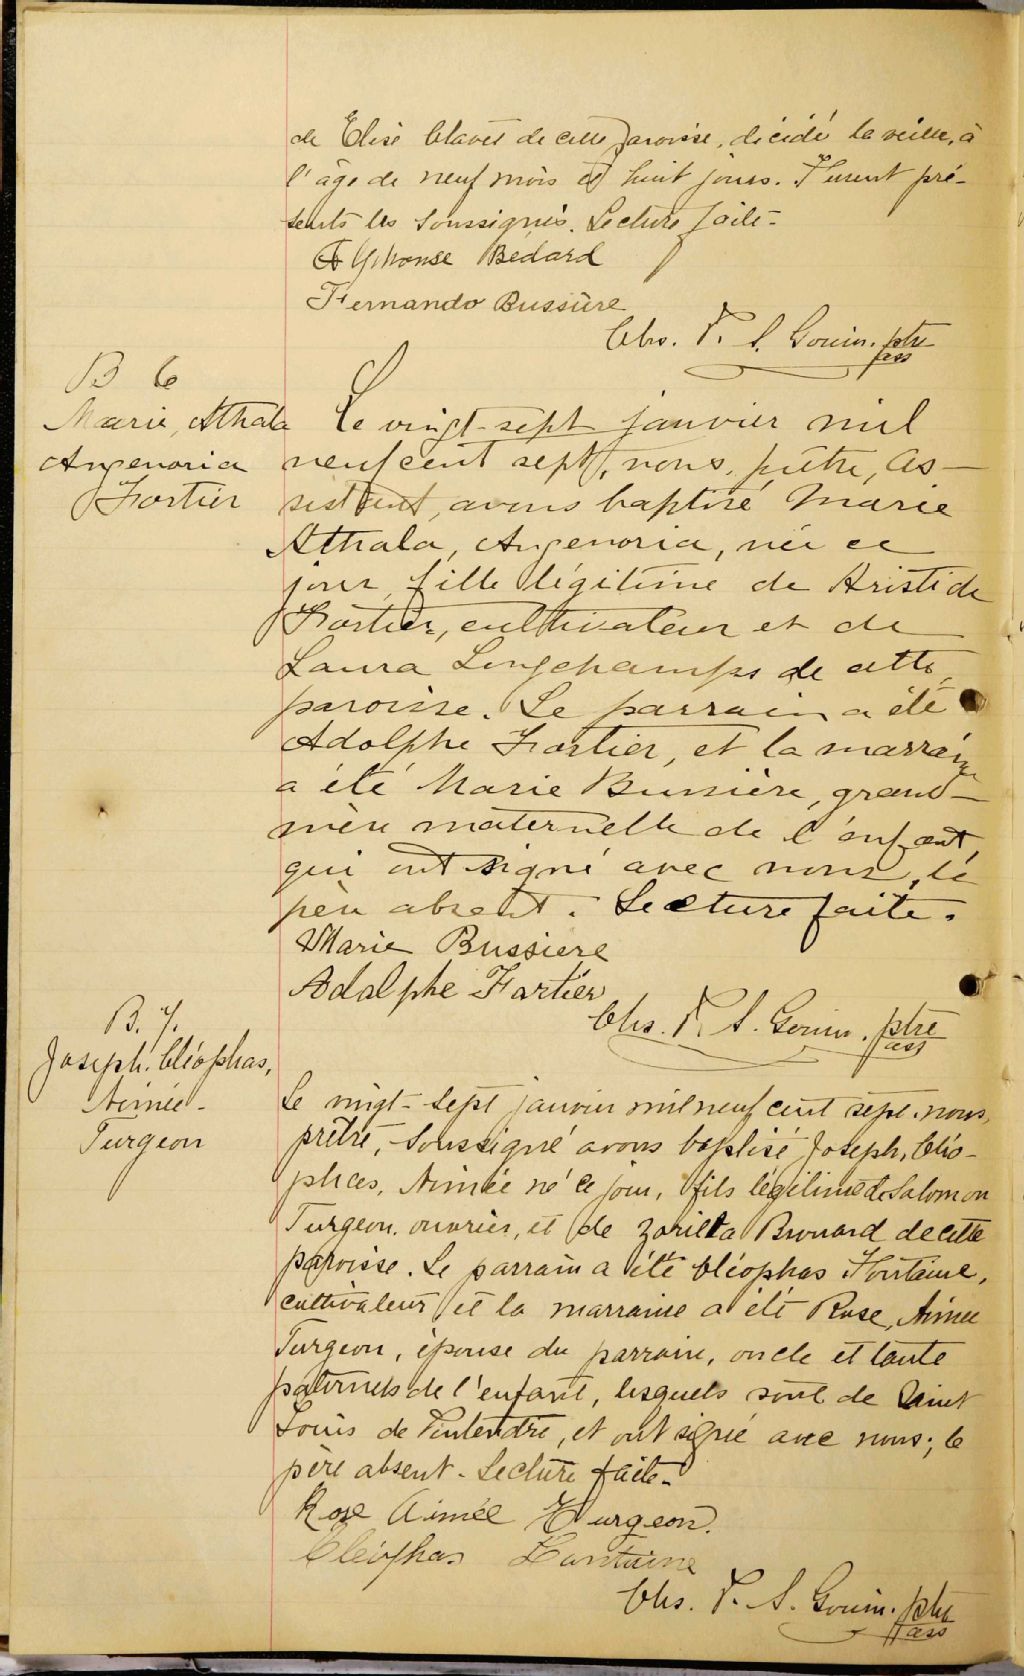 de Elise Clavet de cette paroisse, décédé la veille, à
l'âge de neuf mois et huit jours. Furent pré-
sents les soussignés. Lecture faite-
Alphonse Bédard
Fernando Bussière
Chs. V. S. Gouin. ptre
ass
B 6
Marie, Athala
Angenoria
Fortier
Le vingt-sept janvier mil
neuf cent sept, nous, prêtre, as-
sistant, avons baptisé Marie
Athala, Angenoria, née ce
jour, fille légitime de Aristide
Fortier, cultivateur et de
Laura Longchamps de cette
paroisse. Le parrain a été
Adolphe Fortier, et la marraine
a été Marie Bussière, grand-
mère maternelle de l'enfant,
qui ont signé avec nous, le
père absent. Lecture faite.
Marie Bussiere
Adolphe Fortier
Chs. V. S. Gouin. ptre
ass
B. 7.
Joseph. Cléophas,
Aimée-
Turgeon
Le vingt-sept janvier mil neuf cent sept. nous,
prêtre, soussigné avons baptisé Joseph, Cléo-
phas, Aimée né ce jour, fils légitime de Salomon
Turgeon, ouvrier, et de Zorilla Brouard de cette
paroisse. Le parrain a été Cléophas Fontaine,
cultivateur et la marraine a été Rose, Aimée
Turgeon, épouse du parrain, oncle et tante
paternels de l'enfant, lesquels sont de Saint
Louis de Pintendre, et ont signé avec nous; le
père absent- Lecture faite-
Rose Aimée Turgeon.
Cléophas Fontaine
Chs. V. S. Gouin. ptre
ass